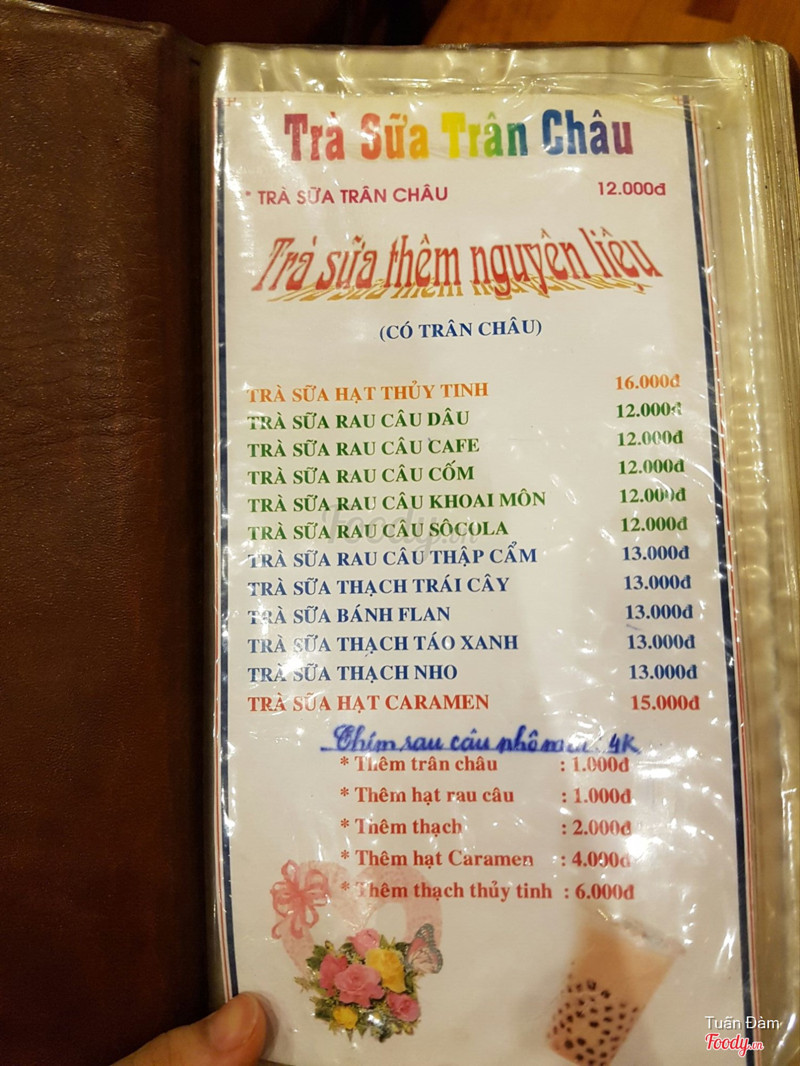 Trà Sữa Trân Châu
* TRÀ SỮA TRÂN CHÂU 12.000đ
Trà sữa thêm nguyên liệu
(CÓ TRÂN CHÂU)
TRÀ SỮA HẠT THỦY TINH 16.000đ
TRÀ SỮA RAU CÂU DÂU 12.000đ
TRÀ SỮA RAU CÂU CAFE 12.000đ
TRÀ SỮA RAU CÂU CỐM 12.000đ
TRÀ SỮA RAU CÂU KHOAI MÔN 12.000đ
TRÀ SỮA RAU CÂU SÔCOLA 12.000đ
TRÀ SỮA RAU CÂU THẬP CẨM 13.000đ
TRÀ SỮA THẠCH TRÁI CÂY 13.000đ
TRÀ SỮA BÁNH FLAN 13.000đ
TRÀ SỮA THẠCH TÁO XANH 13.000đ
TRÀ SỮA THẠCH NHO 13.000đ
TRÀ SŨA HẠT CARAMEN 15.000đ
rau câu 4K
* Thêm trân châu : 1.000đ
* Thêm hạt rau câu : 1.000đ
* Thêm thạch : 2.000đ
* Thêm hạt Caramen : 4.000đ
* Thêm thạch thủy tinh : 6.000đ
Foody.vn
Tuấn Đàm
Foody.vn